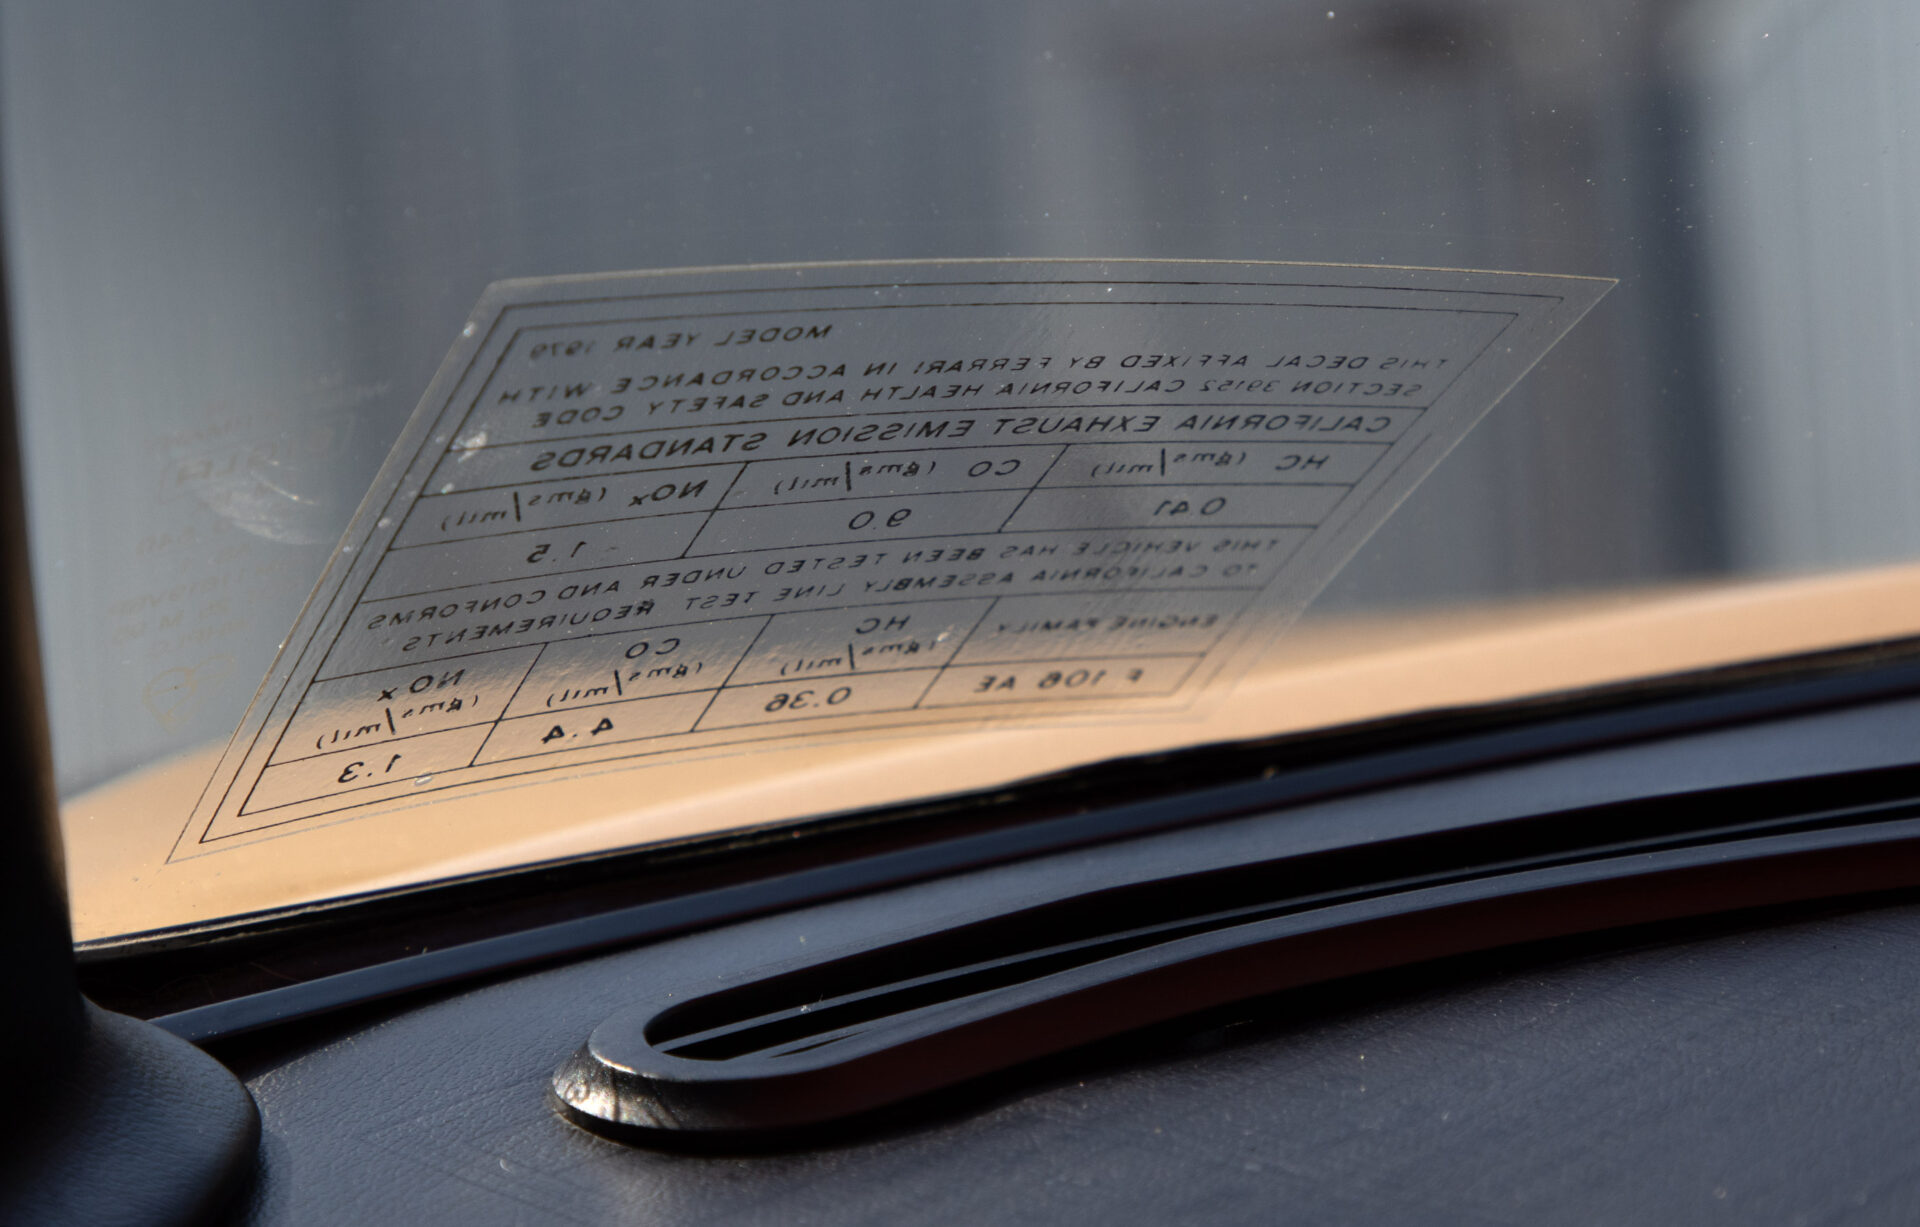 MODEL YEAR 1979
THIS DECAL AFFIXED BY FERRARI IN ACCORDANCE WITH
SECTION 39152 CALIFORNIA HEALTH AND SAFETY CODE
CALIFORNIA EXHAUST EMISSION STANDARDS
HC (gms/mil) CO (gms/mil) NOx (gms/mil)
0.41 9.0 1.5
THIS VEHICLE HAS BEEN TESTED UNDER AND CONFORMS
TO CALIFORNIA ASSEMBLY LINE TEST REQUIREMENTS
ENGINE FAMILY HC (gms/mil) CO (gms/mil) NOx (gms/mil)
F 106 AE 0.36 4.4 1.3